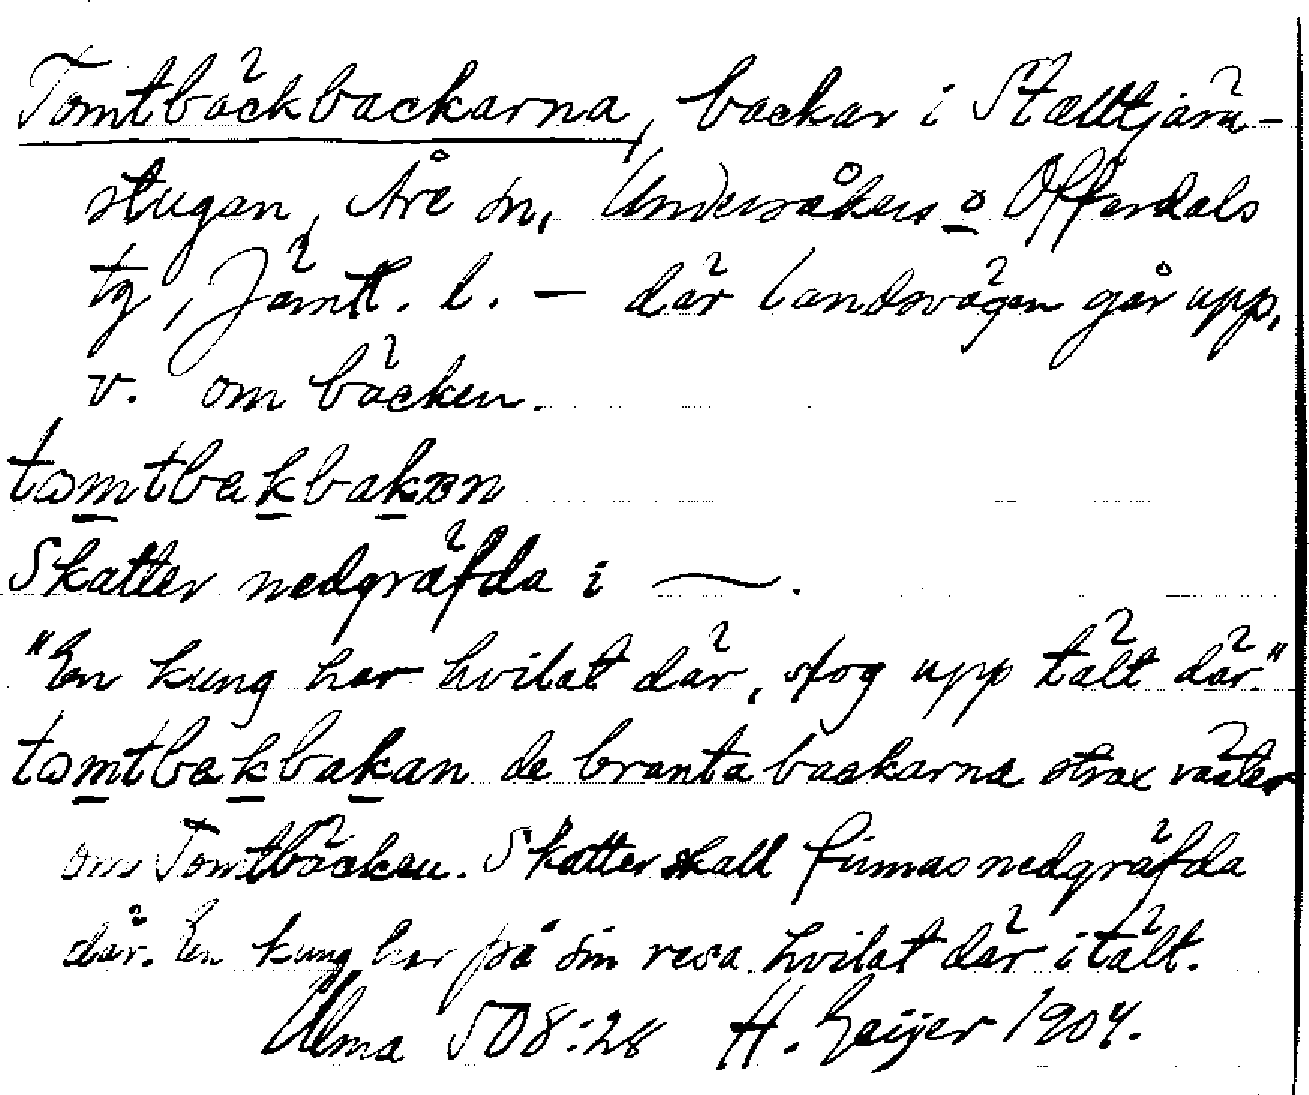 Tomtbäckbackarna, backar i Stalltjärn-
stugan, Åre sn, Undersåkers o Offerdals
tg, Jämtl. l. — där landsvägen går upp,
v. om bäcken.
tomtbekbakɐn
Skatter nedgräfda i —.
"En kung har hvilat där, slog upp tält där"
tomtbekbakan de branta backarna strax väster
om Tomtbäcken. Skatter skall finnas nedgräfda
där. En kung har på sin resa hvilat där i tält.
Ulma 508:28 H. Geijer 1904.